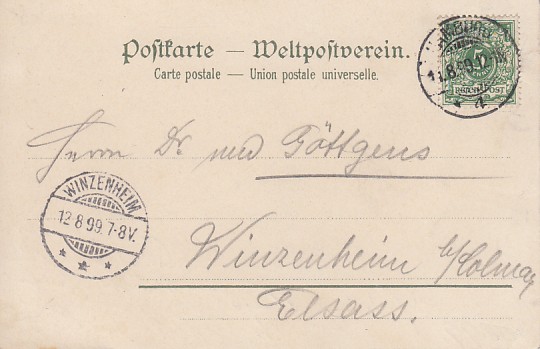 Postkarte — Weltpostverein.
Carte postale — Union postale universelle.
5
REICHSPOST
.8.99.12
* 4
Herrn Dr. med Göttgens
WINZENHEIM
12.8.99.7-8V.
* * *
Winzenheim b/Colmar
Elsass.